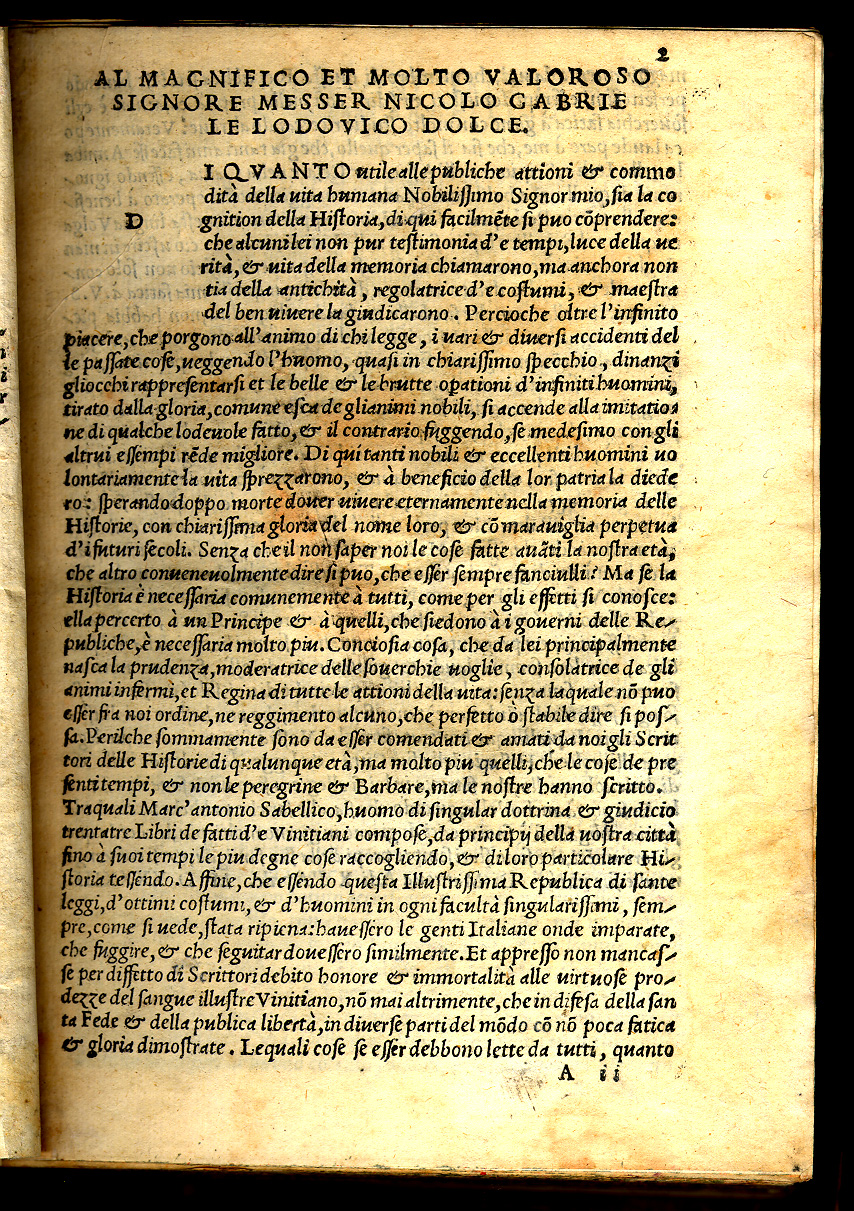 2
AL MAGNIFICO ET MOLTO VALOROSO
SIGNORE MESSER NICOLO GABRIE
LE LODOVICO DOLCE.
D I QVANTO utile alle publiche attioni & commo
dità della uita humana Nobilissimo Signor mio, sia la co
gnition della Historia, di qui facilmẽte si puo cõprendere:
che alcuni lei non pur testimonia d'e tempi, luce della ue
rità, & uita della memoria chiamarono, ma anchora non
tia della antichità, regolatrice d'e costumi, & maestra
del ben uiuere la giudicarono. Percioche oltre l'infinito
piacere, che porgono all'animo di chi legge, i uari & diuersi accidenti del
le passate cose, ueggendo l'huomo, quasi in chiarissimo specchio, dinanzi
gliocchi rappresentarsi et le belle & le brutte opationi d'infiniti huomini,
tirato dalla gloria, comune esca de glianimi nobili, si accende alla imitatio-
ne di qualche lodeuole fatto, & il contrario fuggendo, se medesimo con gli
altrui essempi rẽde migliore. Di qui tanti nobili & eccellenti huomini uo
lontariamente la uita sprezzarono, & à beneficio della lor patria la diede
ro: sperando doppo morte douer uiuere eternamente nella memoria delle
Historie, con chiarissima gloria del nome loro, & cõ marauiglia perpetua
d'i futuri secoli. Senza che il non saper noi le cose fatte auãti la nostra età,
che altro conueneuolmente dire si puo, che esser sempre fanciulli? Ma se la
Historia è necessaria comunemente à tutti, come per gli effetti si conosce:
ella percerto à un Principe & à quelli, che siedono à i gouerni delle Re-
publiche, è necessaria molto piu. Conciosia cosa, che da lei principalmente
nasca la prudenza, moderatrice delle souerchie uoglie, consolatrice de gli
animi infermi, et Regina di tutte le attioni della uita: senza laquale nõ puo
esser fra noi ordine, ne reggimento alcuno, che perfetto ò stabile dire si pos-
sa. Perilche sommamente sono da esser comendati & amati da noi gli Scrit
tori delle Historie di qualunque età, ma molto piu quelli, che le cose de pre
senti tempi, & non le peregrine & Barbare, ma le nostre hanno scritto.
Tra quali Marc'antonio Sabellico, huomo di singular dottrina & giudicio
trentatre Libri de fatti d'e Vinitiani compose, da principij della uostra città
fino à suoi tempi le piu degne cose raccogliendo, & di loro particolare Hi-
storia tessendo. Affine, che essendo questa Illustrissima Republica di sante
leggi, d'ottimi costumi, & d'huomini in ogni facultà singularissimi, sem-
pre, come si uede, stata ripiena: hauessero le genti Italiane onde imparate,
che fuggire, & che seguitar douessero similmente. Et appresso non mancas-
se per diffetto di Scrittori debito honore & immortalità alle uirtuose pro-
dezze del sangue illustre Vinitiano, nõ mai altrimente, che in difesa della san
ta Fede & della publica libertà, in diuerse parti del mõdo cõ nõ poca fatica
& gloria dimostrate. Lequali cose se esser debbono lette da tutti, quanto
A ii